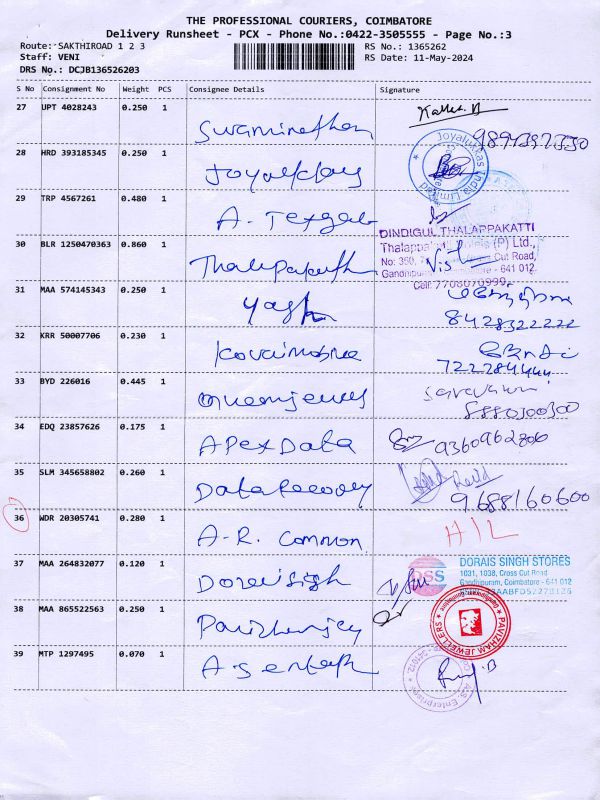 THE PROFESSIONAL COURIERS, COIMBATORE
Delivery Runsheet - PCX - Phone No.:0422-3505555 - Page No.:3
Route: SAKTHIROAD 1 2 3 RS No.: 1365262
Staff: VENI RS Date: 11-May-2024
DRS No.: DCJB136526203
S No Consignment No Weight PCS Consignee Details Signature
27 UPT 4028243 0.250 1
Swaminathan
28 HRD 393185345 0.250 1
Joyalukkas
Joyalukkas India Limited
29 TRP 4567261 0.480 1
A.
30 BLR 1250470363 0.860 1
Thalapakatti
DINDIGUL THALAPPAKATTI
(P) Ltd.,
No: 350, Cut Road,
Gandhipuram, Coimbatore - 641 012.
Cell: 7708070999
31 MAA 574145343 0.250 1
Yash
8428322222
32 KRR 50007706 0.230 1
Kovai mobile
33 BYD 226016 0.445 1
Saravanan
34 EDQ 23857626 0.175 1
Apex Data
9360962806
35 SLM 345658802 0.260 1
Data Recovery
9688160600
36 WDR 20305741 0.280 1
A.R. Common
37 MAA 264832077 0.120 1
Doraisigh
DSS
DORAIS SINGH STORES
1031, 1038, Cross Cut Road
Gandhipuram, Coimbatore - 641 012
38 MAA 865522563 0.250 1
PAVIZHAM JEWELLERS
39 MTP 1297495 0.070 1
A.S. Enterprises